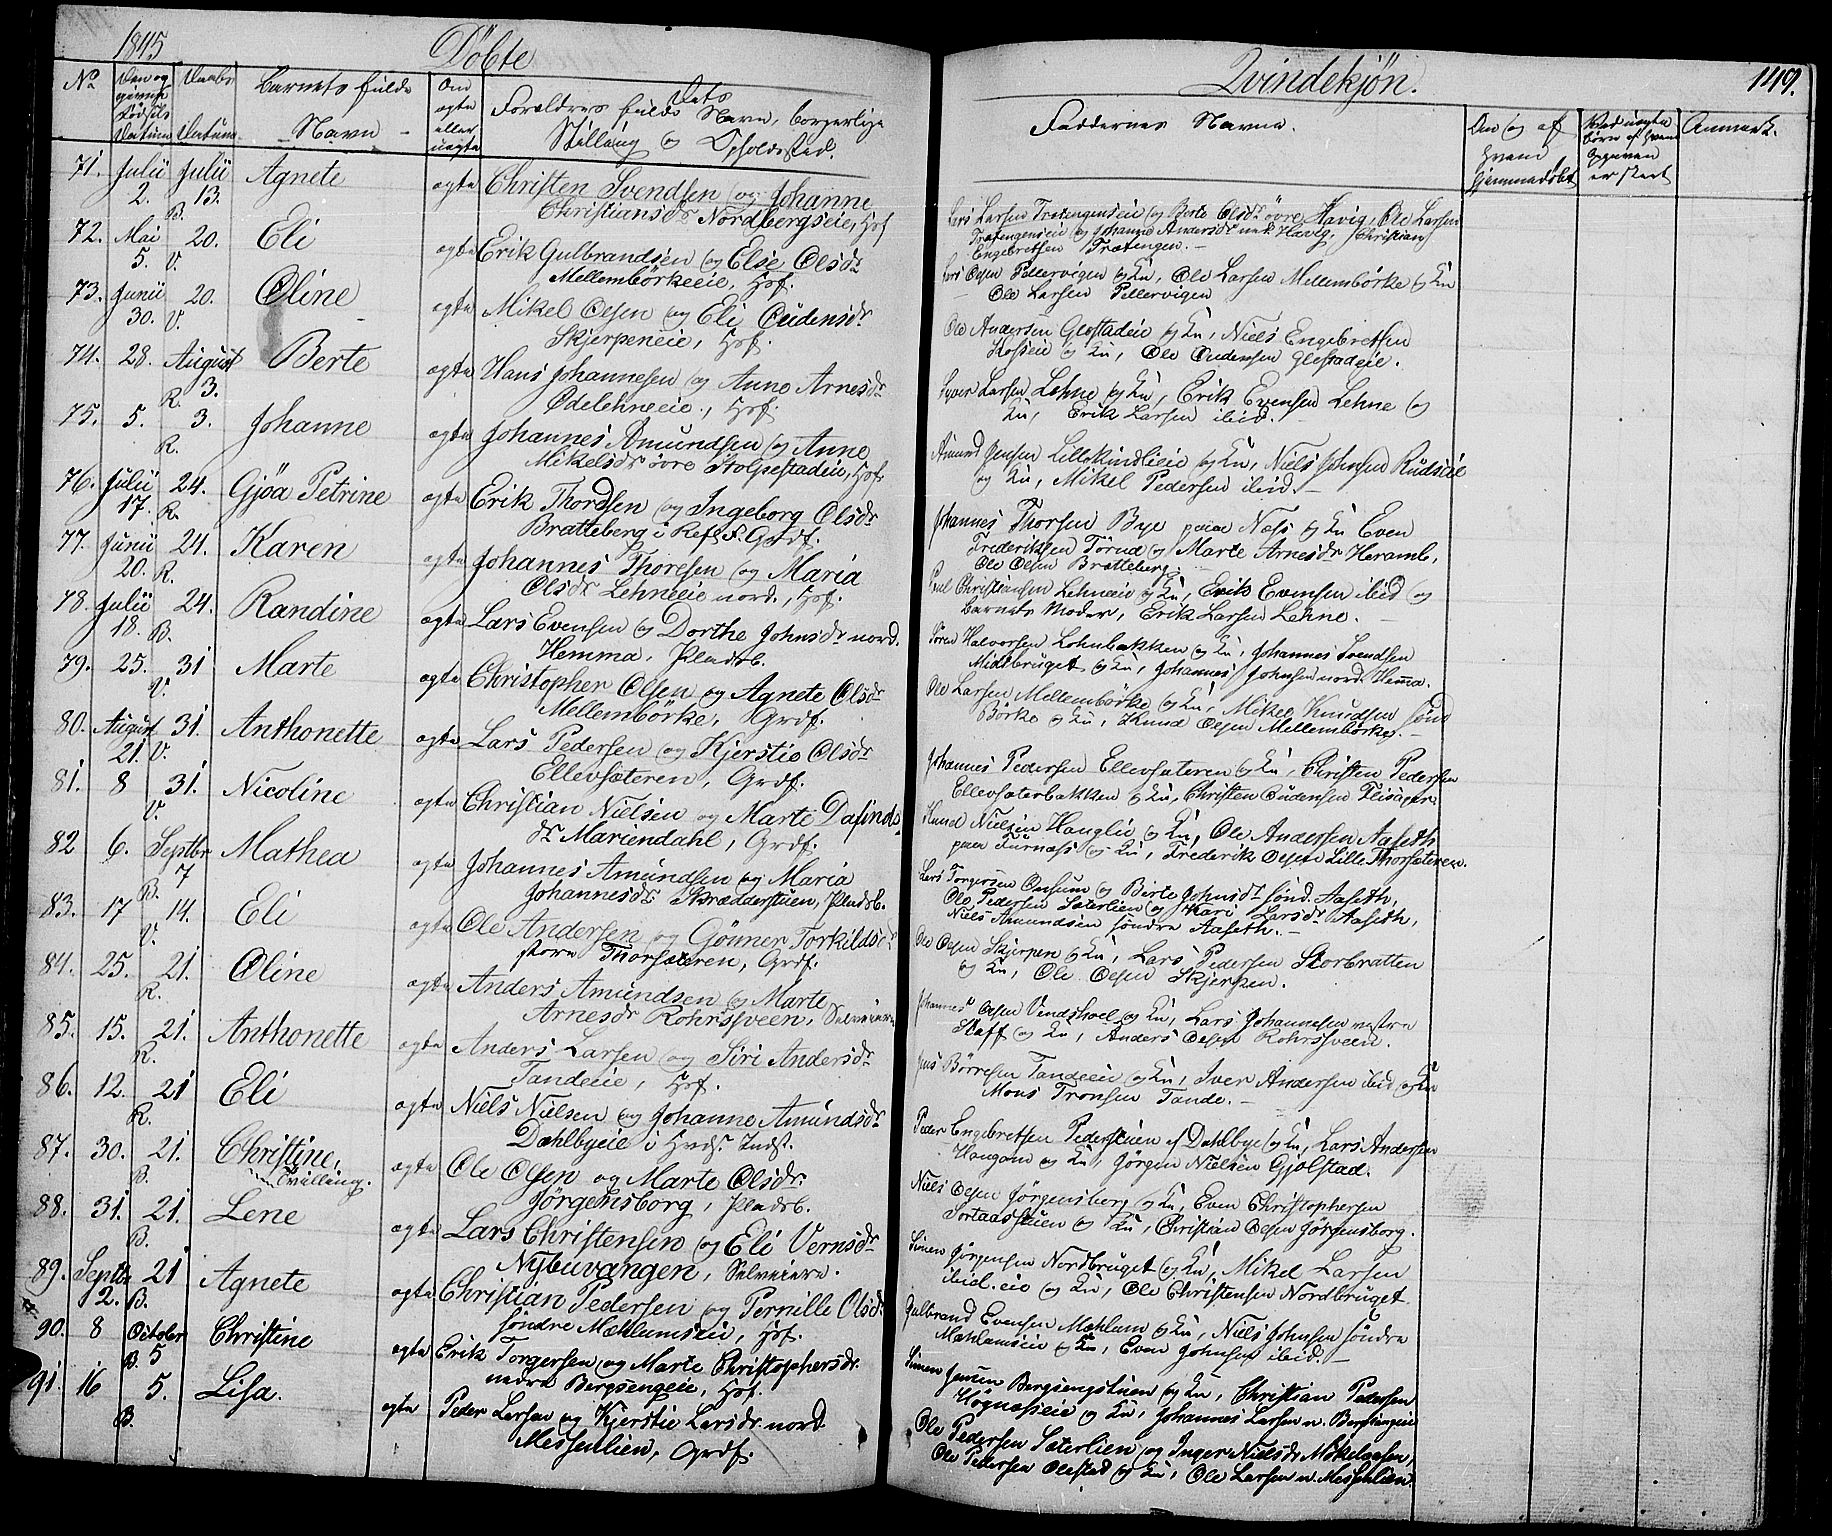 1845 Döbte Qvindekjön. 149.
No Den og given Födsels Datum Daabs Datum Barnets fulde Navn Om ægte eller uægte Forældres fulde Navn, borgerlige Stilling og Opholdssted. Faddernes Navne. Om og af hvem hjemmedöbt Anmærk.
71. Julii 2. Julii 13. B. Agnete ægte Christen Svendsen og Johanne
Christiansdr Nordbergseie, Hof
Lars Larsen Trætengenseie og Berte Olsdr övre Havig, Ole Larsen
Trætengenseie og Johanne Andersdr ned. Havig, Christian
Engebretsen Trætengen.
72. Mai 5. 20. V. Eli ægte Erik Gulbrandsen og Else Olsdr
Mellembörkeeie, Hof.
Lars Olsen Pellervigen og Ku, Ole Larsen Mellembörke og Ku
Ole Larsen Pellervigen
73. Junii 30. 20. V. Oline ægte Mikel Olsen og Eli Oudensdr
Skjerpeneie, Hof.
Ole Andersen Glestadeie og Ku, Niels Engebretsen
Kosseie og Ku, Ole Oudensen Glestadeie.
74. 28. August 3. R. Berte ægte Hans Johannesen og Anne Arnesdr
Ödelehneeie, Hof.
Syver Larsen Lehne og Ku, Erik Evensen Lehne og
Ku, Erik Larsen ibid.
75. 5. 3. R. Johanne ægte Johannes Amundsen og Anne
Mikelsdr övre Stolpestadeie, Hof
Amund Jensen Lillekindlieie og Ku, Niels Johnsen Rudseie
og Ku, Mikel Pedersen ibid.
76. Julii 17. 24. R. Gjøa Petrine ægte Erik Thordsen og Ingeborg Olsdr
Bratteberg i Refs. F. Grdf.
Johannes Thorsen Bye paa Næss og Ku Even
Frederiksen Törud og Marte Arnesdr Heramb,
Ole Olsen Bratteberg.
77. Junii 20. 24. R. Karen ægte Johannes Thoresen og Maria
Olsdr Lehneeie nord., Hof.
Poul Christiansen Lehneeie og Ku, Erik Evensen ibid og
Barnets Moder, Erik Larsen Lehne.
78. Julii 18. 24. B. Randine ægte Lars Evensen og Dorthe Johnsdr nord.
Hemma, Pladsb.
Sören Halvorsen Lohnbakken og Ku, Johannes Svendsen
Midtbruget og Ku, Johannes Johnsen nord. Hemma.
79. 25. 31 V. Marte ægte Christopher Olsen og Agnete Olsdr
Mellembörke, Grdf.
Ole Larsen Mellembörke og Ku, Mikel Knudsen sönd
Börke og Ku, Knud Olsen Mellembörke.
80. August 21. 31. V. Anthonette ægte Lars Pedersen og Kjerstie Olsdr
Ellevsæteren, Grdf.
Johannes Pedersen Ellevsæteren og Ku, Christen Pedersen
Ellevsæterbakken og Ku, Christen Oudensen Flisager
81. 8 31. V. Nicoline ægte Christian Nielsen og Marte Dafinds-
dr Mariendahl, Grdf.
Knud Nielsen Hauglie og Ku, Ole Andersen Aaseth
paa Furnæss og Ku, Frederik Olsen Lille Thorsæteren.
82 6. Septbr 7 B. Mathea ægte Johannes Amundsen og Maria
Johannesdr Skrædderstuen, Pladsb.
Lars Torgersen Onsum og Berte Johnsdr sönd. Aaseth,
Ole Pedersen Sæterlien og Kari Larsdr Aaseth,
Niels Amundsen söndre Aaseth.
83. 17 14. V. Eli ægte Ole Andersen og Gönner Torkildsdr
store Thorsæteren, Grdf.
Ole Olsen Skjerpen og Ku, Lars Pedersen Storbratten
og Ku, Ole Olsen Skjerpen.
84. 25. 21. R. Oline ægte Anders Amundsen og Marte
Arnesdr Rohrssveen, Selveiere
Johannes Olsen Vendskoel og Ku, Lars Johannesen vestre
Staff og Ku, Anders Olsen Rohrssveen.
85. 15. 21. R. Anthonette ægte Anders Larsen og Siri Andersdr
Tandeeie, Hof.
Jens Börresen Tandeeie og Ku, Iver Andersen ibid og Ku
Mons Tronsen Tande.
86. 12. 21 R. Eli ægte Niels Nielsen og Johanne Amundsdr
Dahlbyeie i Hvds. Indst.
Peder Engebretsen Pederstuen af Dahlbye og Ku, Lars Andersen
Haugom og Ku, Jörgen Nielsen Gjölstad.
87. 30. 21. B. Christine, Tvilling. ægte Ole Olsen og Marte Olsdr.
Jörgensborg, Pladsb.
Niels Olsen Jörgensborg og Ku, Even Christophersen
Sortaasstuen og Ku, Christian Olsen Jörgensborg.
88. 31. 21. B. Lene ægte Lars Christensen og Eli Vernsdr
Nybuvangen, Selveiere.
Simen Jörgensen Nordbruget og Ku, Mikel Larsen
ibid. eie og Ku, Ole Christensen Nordbruget
89. Septbr 2. 21 B. Agnete ægte Christian Pedersen og Pernille Olsdr
söndre Mæhlumseie, Hof.
Gulbrand Evensen Mæhlum og Ku, Niels Johnsen söndre
Mæhlumseie og Ku, Even Johnsen ibid.
90. 8 October 5 B. Christine ægte Erik Torgersen og Marte Christophersdr.
nedre Bergsengeie, Hof.
Simen Jensen Bergsengstuen og Ku, Christian Pedersen
Högnæsseie og Ku, Johannes Larsen n. Bergsengeie
91. 16 5. B. Lisa. ægte Peder Larsen og Kjerstie Larsdr. nord
Messenlien, Grdf.
Ole Pedersen Sæterlien og Inger Nielsdr Mökelaasen,
Ole Pedersen Olestad og Ku, Ole Larsen n. Messenlien.